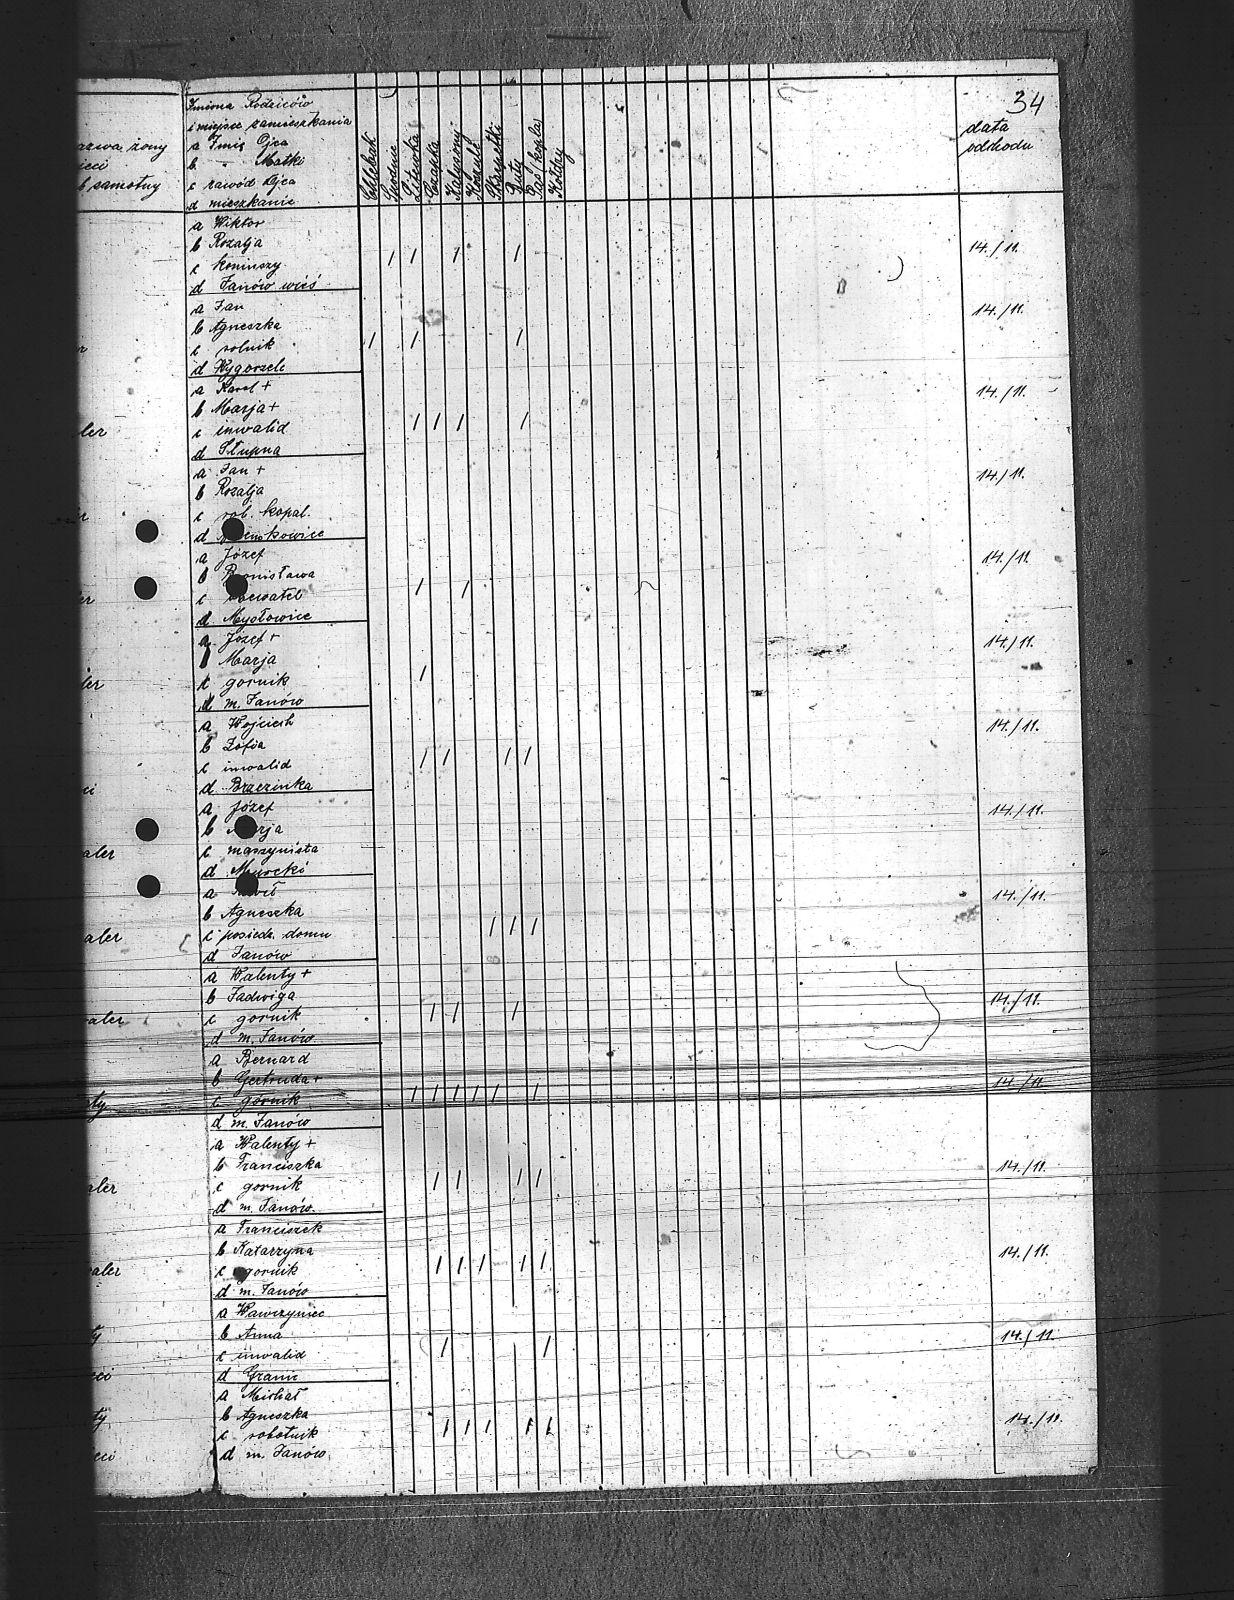 34
Imiona Rodziców
i miejsce zamieszkania
a Imię Ojca
b " Matki
c zawód Ojca
d mieszkanie
żony
samotny
Chlebak
Spodnie
Literwka
Kalesony
Koszule
Skarpetki
Buty
Pas kopla
Kotlay
data
odchodu
a Wiktor
b Rozalja
c koniuszy
d Janów wieś
14./11.
a Jan
b Agneszka
c rolnik
d Wygorzele
14./11.
a Karol +
b Marja +
c inwalid
d Słupna
14./11.
a Jan +
b Rozalja
c rob. kopal.
d
14./11.
a Józef
b Bronisława
c
d Mysłowice
14./11.
a Józef +
b Marja
c gornik
d m. Janów
14./11.
a Wojciech
b Zofia
c inwalid
d Brzezinka
14./11.
a Józef
b Marja
c maszynista
d Murcki
14./11.
a
b Agneszka
c posiedz. domu
d Janów
14./11.
a Walenty +
b Jadwiga
c gornik
d m. Janów
14./11.
a Bernard
b Gertruda +
c górnik
d m. Janów
14./11
a Walenty +
b Franciszka
c gornik
d m. Janów
14./11
a Franciszek
b Katarzyna
c gornik
d m. Janów
14./11.
a Wawrzyniec
b Anna
c inwalid
d
14./11.
a Michał
b Agneszka
c robotnik
d m. Janów
14./11